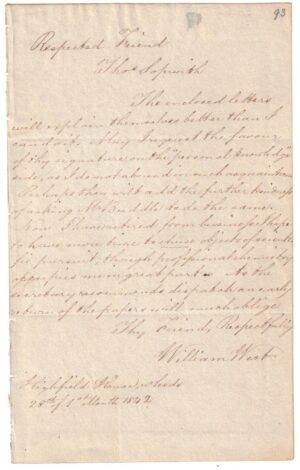 93
Respected Friend
Thos Sopwith
The enclosed letters
will explain themselves better than I
can do it. May I request the favour
of thy signature on the "personal knowledge"
side, as I do not abound in such acquaintance
Perhaps thou wilt add the further kindness
of asking Mr Buddle to do the same.
Now I have retired from business I hope
to have more time to chuse objects of scienti-
fic pursuit, though professional chemistry
occupies me in great part. As the
secretary recommends dispatch an early
return of the papers will much oblige
Thy Friend, Respectfully
William West
Highfield House, Leeds
28th of 1st Month 1842